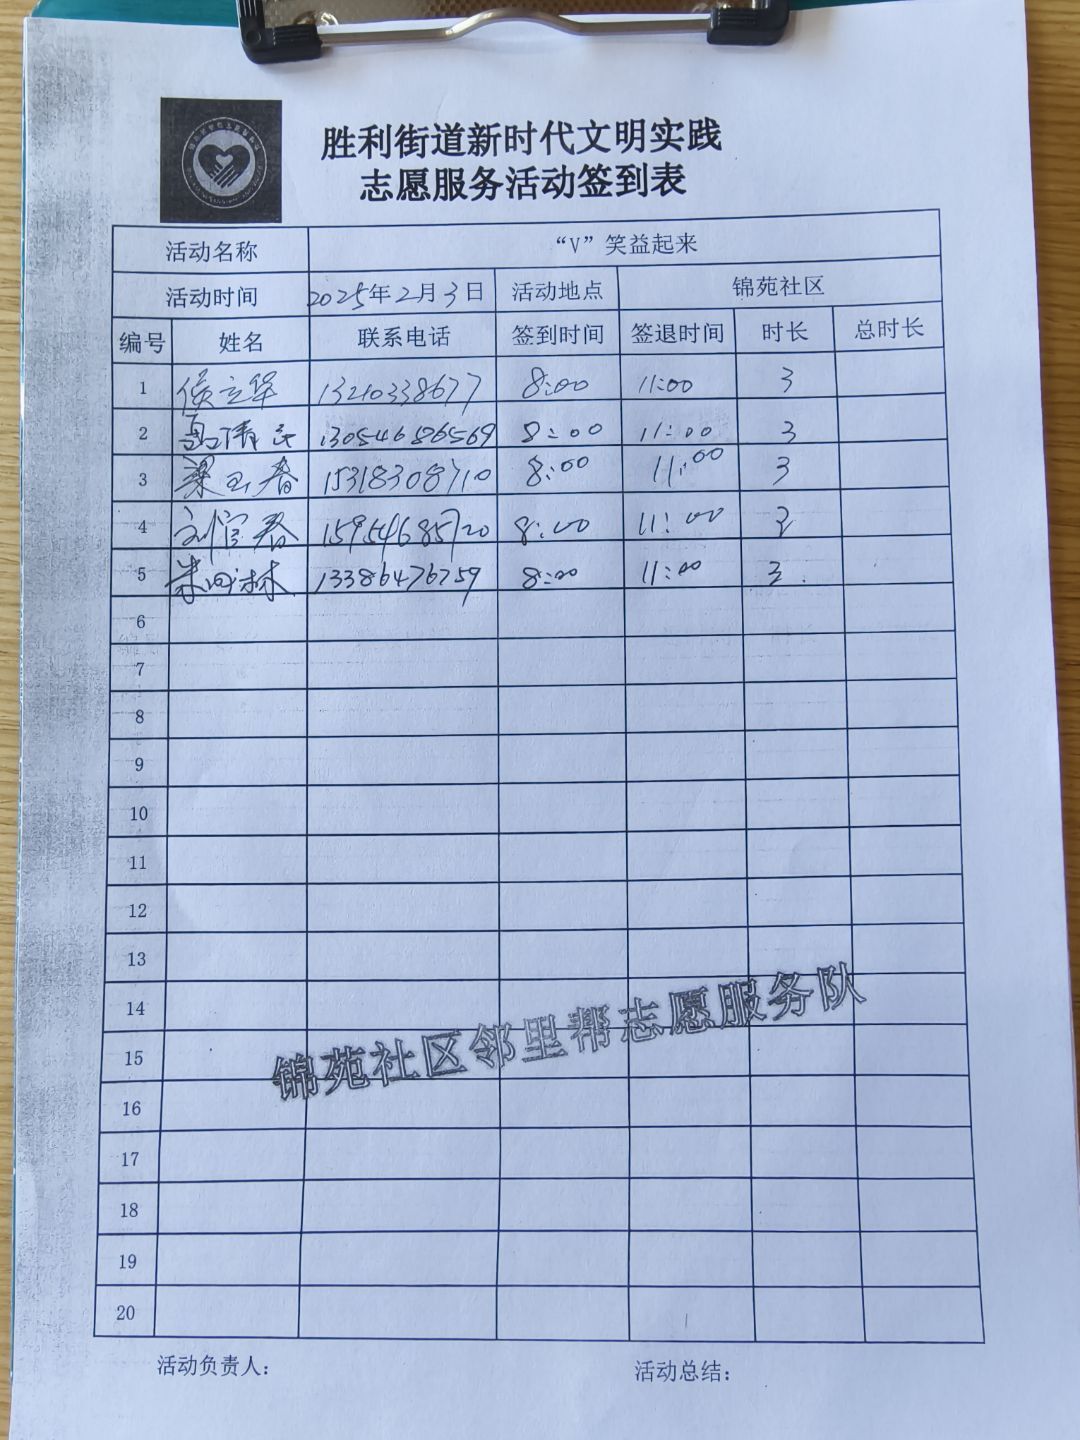 胜利街道新时代文明实践
志愿服务活动签到表
活动名称 “V”笑益起来
活动时间 2025年2月3日 活动地点 锦苑社区
编号 姓名 联系电话 签到时间 签退时间 时长 总时长
1 侯立华 13210338677 8:00 11:00 3
2 清 13054686569 8:00 11:00 3
3 梁玉春 15318308710 8:00 11:00 3
4 刘官春 15954685720 8:00 11:00 3
5 朱林 13386476759 8:00 11:00 3
6
7
8
9
10
11
12
13
14
15
16
17
18
19
20
锦苑社区邻里帮志愿服务队
活动负责人： 活动总结：